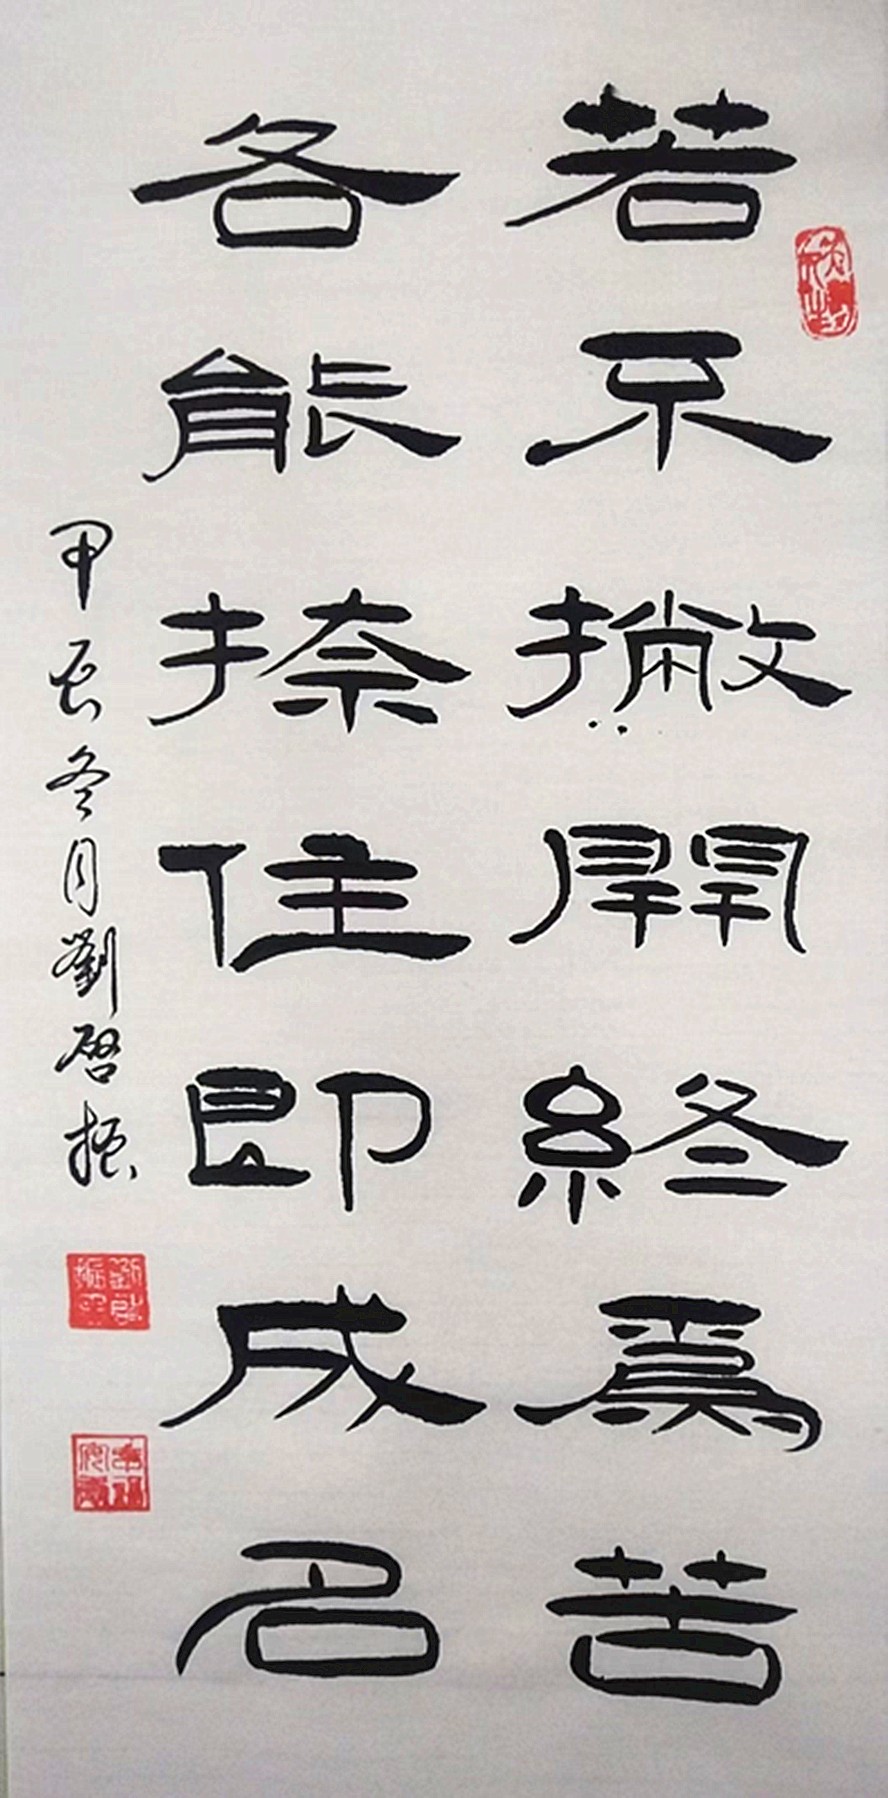 若不撇開終爲苦
各能捺住即成名
甲辰冬月劉啓振